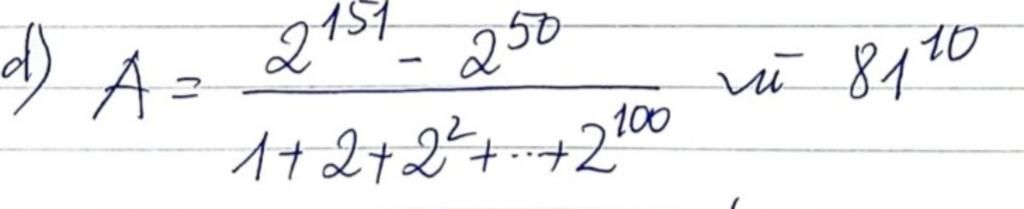 d) A = \frac{2^{151} - 2^{50}}{1 + 2 + 2^2 + \dots + 2^{100}} và 81^{10}